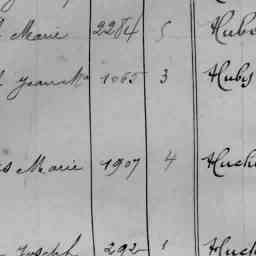 Marie 2284 5 Hube
1065 3 Huby
Marie 1907 4 Huch
Joseph 292 1 Huck